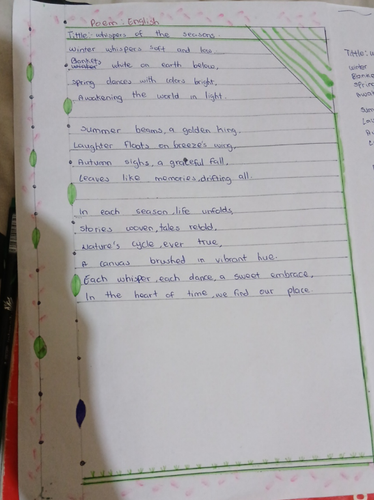 Poem: English
Tittle: whispers of the seasons
Winter whispers soft and low
Blankets white on earth below,
Spring dances with colors bright,
Awakening the world in light.
Summer beams, a golden hing,
Laughter floats on breeze's wing,
Autumn sighs, a grateful fall,
Leaves like memories, drifting all.
In each season, life unfolds,
Stories woven, tales retold,
Nature's cycle, ever true,
A canvas brushed in vibrant hue.
Each whisper, each dance, a sweet embrace,
In the heart of time, we find our place.